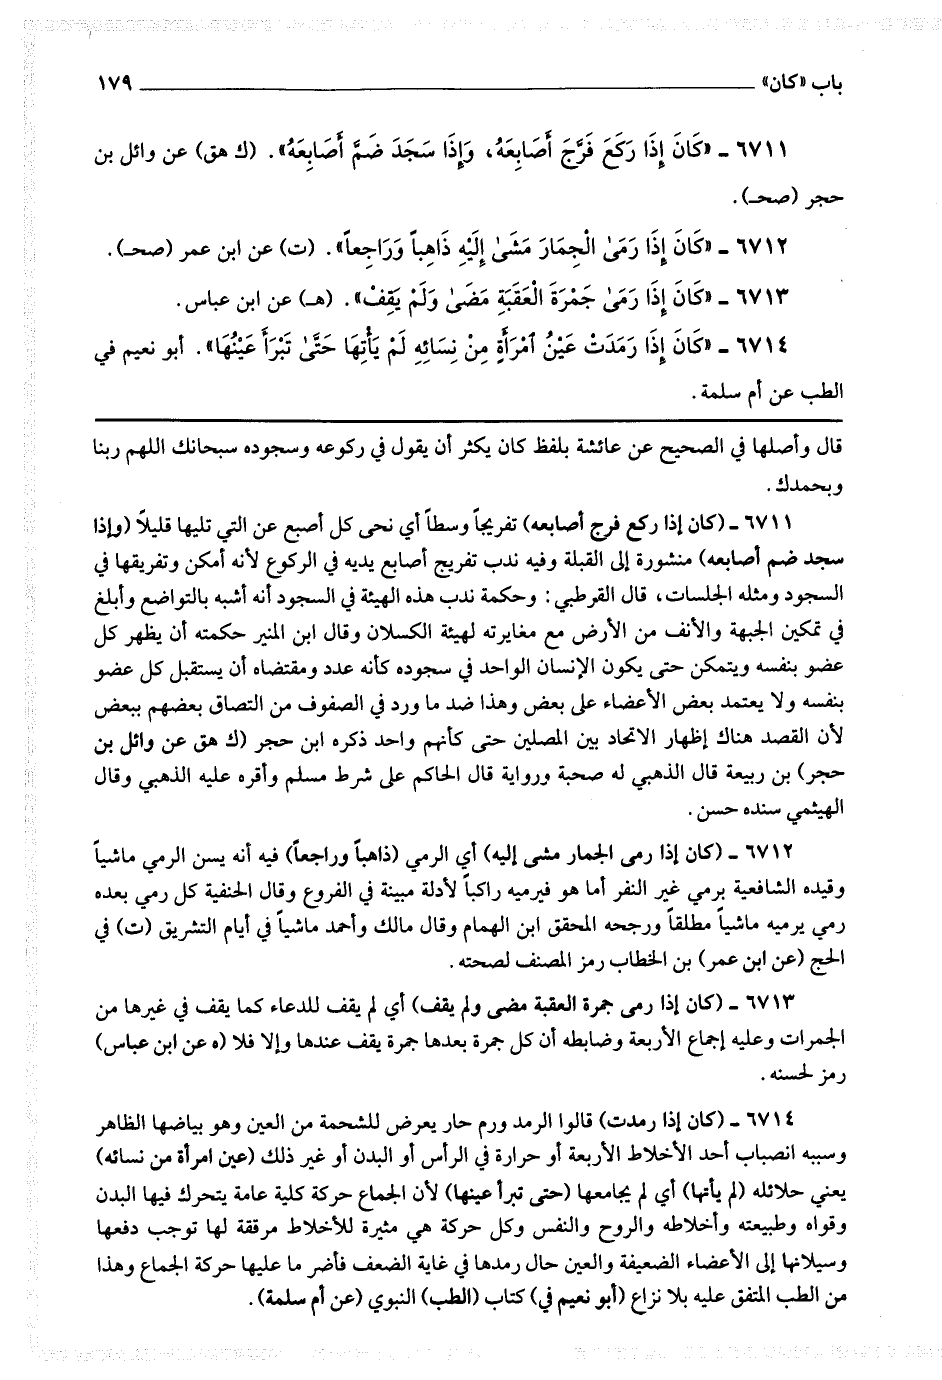 باب «كان» ١٧٩
٦٧١١ ـ «كَانَ إِذَا رَكَعَ فَرَّجَ أَصَابِعَهُ، وَإِذَا سَجَدَ ضَمَّ أَصَابِعَهُ». (ك هق) عن وائل بن
حجر (صحـ).
٦٧١٢ ـ «كَانَ إِذَا رَمَىٰ الْجِمَارَ مَشَىٰ إِلَيْهِ ذَاهِباً وَرَاجِعاً». (ت) عن ابن عمر (صحـ).
٦٧١٣ ـ «كَانَ إِذَا رَمَىٰ جَمْرَةَ الْعَقَبَةِ مَضَىٰ وَلَمْ يَقِفْ». (هـ) عن ابن عباس.
٦٧١٤ ـ «كَانَ إِذَا رَمَدَتْ عَيْنُ ٱمْرَأَةٍ مِنْ نِسَائِهِ لَمْ يَأْتِهَا حَتَّىٰ تَبْرَأَ عَيْنُهَا». أبو نعيم في
الطب عن أم سلمة.
قال وأصلها في الصحيح عن عائشة بلفظ كان يكثر أن يقول في ركوعه وسجوده سبحانك اللهم ربنا
وبحمدك.
٦٧١١ ـ (كان إذا ركع فرج أصابعه) تفريجاً وسطاً أي نحى كل أصبع عن التي تليها قليلاً (وإذا
سجد ضم أصابعه) منشورة إلى القبلة وفيه ندب تفريج أصابع يديه في الركوع لأنه أمكن وتفريقها في
السجود ومثله الجلسات، قال القرطبي: وحكمة ندب هذه الهيئة في السجود أنه أشبه بالتواضع وأبلغ
في تمكين الجبهة والأنف من الأرض مع مغايرته لهيئة الكسلان وقال ابن المنير حكمته أن يظهر كل
عضو بنفسه ويتمكن حتى يكون الإنسان الواحد في سجوده كأنه عدد ومقتضاه أن يستقبل كل عضو
بنفسه ولا يعتمد بعض الأعضاء على بعض وهذا ضد ما ورد في الصفوف من التصاق بعضهم ببعض
لأن القصد هناك إظهار الاتحاد بين المصلين حتى كأنهم واحد ذكره ابن حجر (ك هق عن وائل بن
حجر) بن ربيعة قال الذهبي له صحبة ورواية قال الحاكم على شرط مسلم وأقره عليه الذهبي وقال
الهيثمي سنده حسن.
٦٧١٢ ـ (كان إذا رمى الجمار مشى إليه) أي الرمي (ذاهباً وراجعاً) فيه أنه يسن الرمي ماشياً
وقيده الشافعية برمي غير النفر أما هو فيرميه راكباً لأدلة مبينة في الفروع وقال الحنفية كل رمي بعده
رمي يرميه ماشياً مطلقاً ورجحه المحقق ابن الهمام وقال مالك وأحمد ماشياً في أيام التشريق (ت) في
الحج (عن ابن عمر) بن الخطاب رمز المصنف لصحته.
٦٧١٣ ـ (كان إذا رمى جمرة العقبة مضى ولم يقف) أي لم يقف للدعاء كما يقف في غيرها من
الجمرات وعليه إجماع الأربعة وضابطه أن كل جمرة بعدها جمرة يقف عندها وإلا فلا (ه عن ابن عباس)
رمز لحسنه.
٦٧١٤ ـ (كان إذا رمدت) قالوا الرمد ورم حار يعرض للشحمة من العين وهو بياضها الظاهر
وسببه انصباب أحد الأخلاط الأربعة أو حرارة في الرأس أو البدن أو غير ذلك (عين امرأة من نسائه)
يعني حلائله (لم يأتها) أي لم يجامعها (حتى تبرأ عينها) لأن الجماع حركة كلية عامة يتحرك فيها البدن
وقواه وطبيعته وأخلاطه والروح والنفس وكل حركة هي مثيرة للأخلاط مرققة لها توجب دفعها
وسيلانها إلى الأعضاء الضعيفة والعين حال رمدها في غاية الضعف فأضر ما عليها حركة الجماع وهذا
من الطب المتفق عليه بلا نزاع (أبو نعيم في) كتاب (الطب) النبوي (عن أم سلمة).